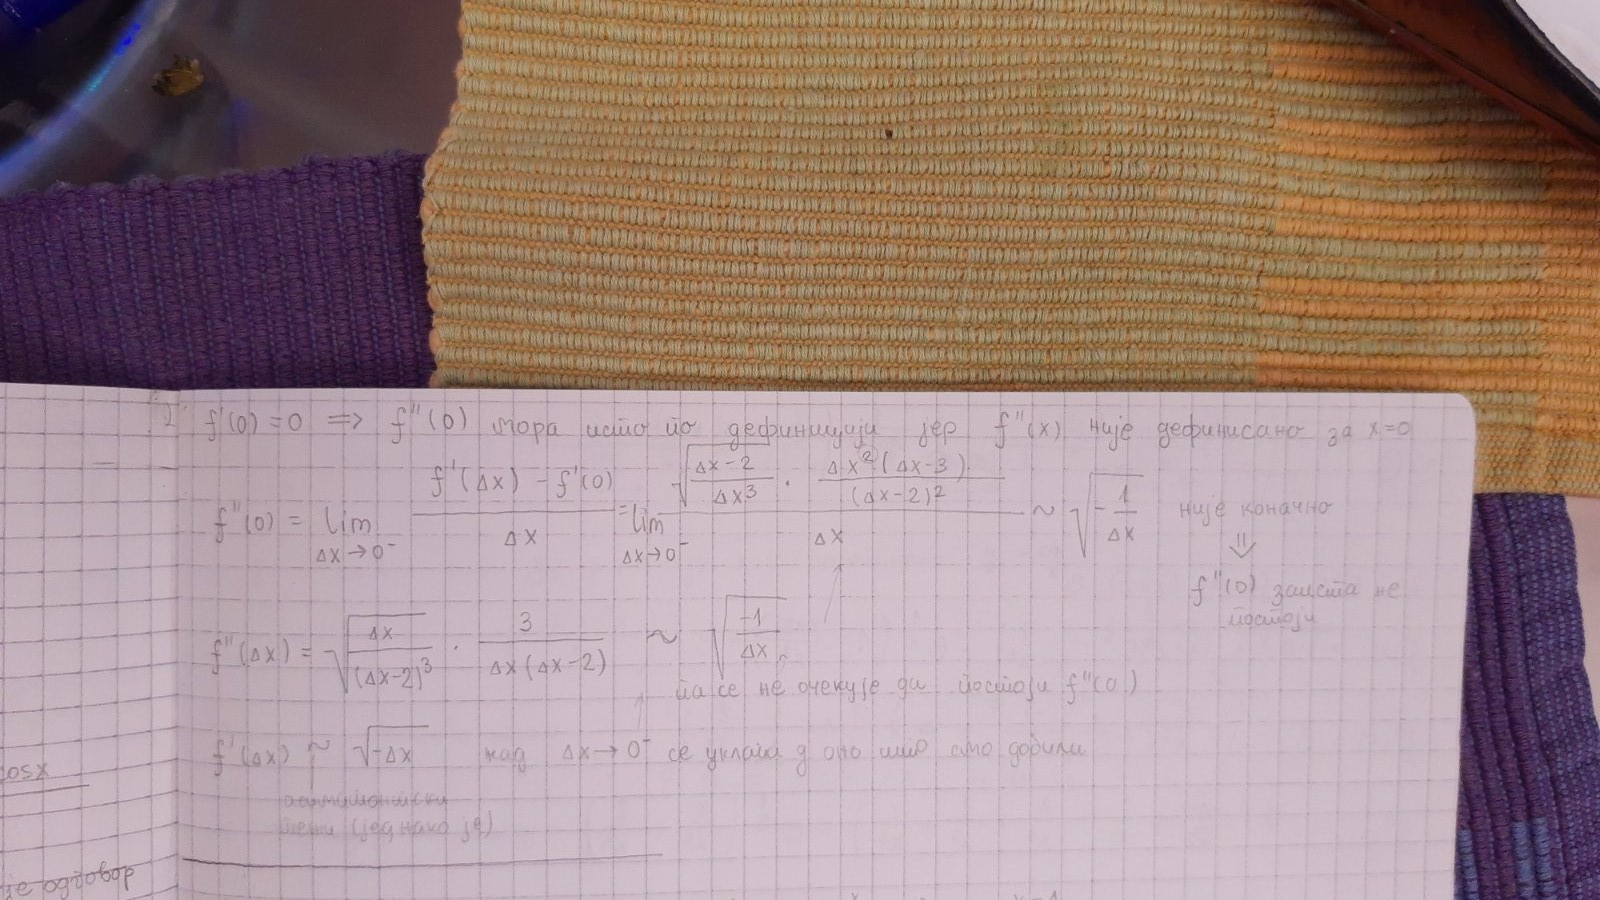 f'(0) = 0 ⟹ f''(0) мора исто по дефиницији јер f''(x) није дефинисано за x=0
f''(0) = lim_{Δx→0⁻} (f'(Δx) - f'(0))/Δx = lim_{Δx→0⁻} (√((Δx-2)/Δx³) · (Δx²(Δx-3))/(Δx-2)²)/Δx ~ √(-1/Δx) није коначно
⇓
f''(0) заиста не
постоји
f''(Δx) = √(Δx/(Δx-2)³) · 3/(Δx(Δx-2)) ~ √(-1/Δx)
па се не очекује да постоји f''(0)
f'(Δx) ~ √(-Δx) кад Δx→0⁻ се уклапа у оно што смо добили
асимптотски
(једнако је)
osx
је одговор